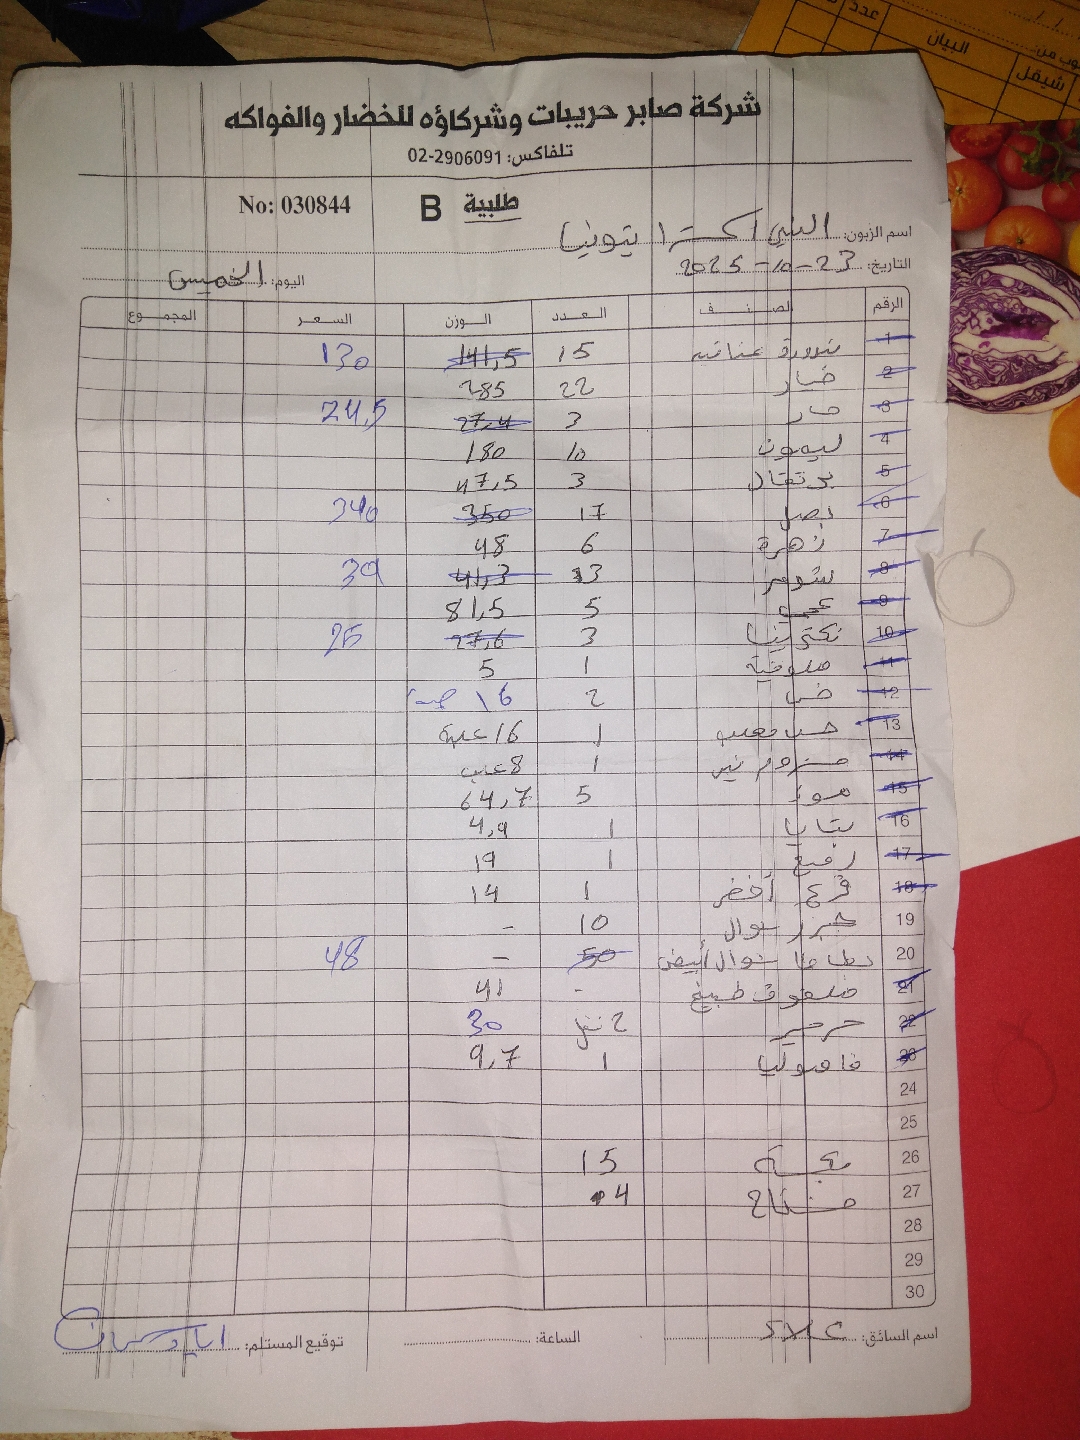 البيان
عدد
شيقل
شركة صابر حريبات وشركاؤه للخضار والفواكه
تلفاكس: 02-2906091
No: 030844 B طلبية
اسم الزبون: اكسترا
التاريخ: 23-10-2025
اليوم: الخميس
الرقم الصنف العدد الوزن السعر المجموع
1 بندورة 15 141,5 130
2 خيار 22 285
3 حار 3 27,4 24,5
4 ليمون 10 180
5 برتقال 3 47,5
6 بصل 17 350 340
7 زهرة 6 48
8 شومر 13 41,3 39
9 5 81,5
10 نكترينا 3 27,6 25
11 ملوخية 1 5
12 خس 2 16
13 1 16 علبة
14 1 8 علب
15 موز 5 64,7
16 بتايا 1 4,9
17 رفيع 1 19
18 قرع أخضر 1 14
19 جزر شوال 10 -
20 بطاطا شوال أبيض 50 - 48
21 ملفوف طبيخ - 41
22 2 30
23 فاصوليا 1 9,7
24
25
26 15
27 4
28
29
30
اسم السائق:
الساعة:
توقيع المستلم: